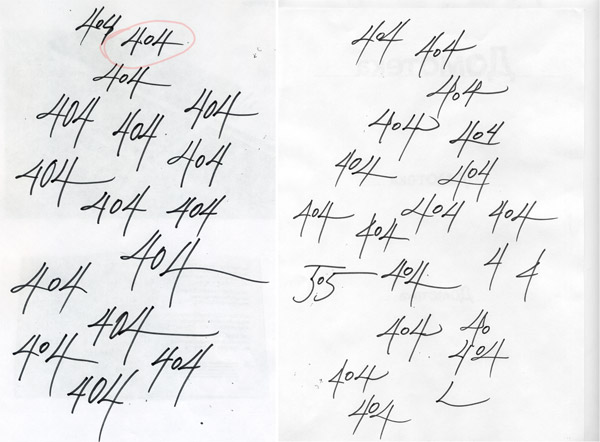 404 404
404
404 404 404
404
404
404 404
404
404
404
404 404
404
404 404
404
404 404
404 404
404 404
404 404 404 404
505 404 4 4
404 40
404
404
404